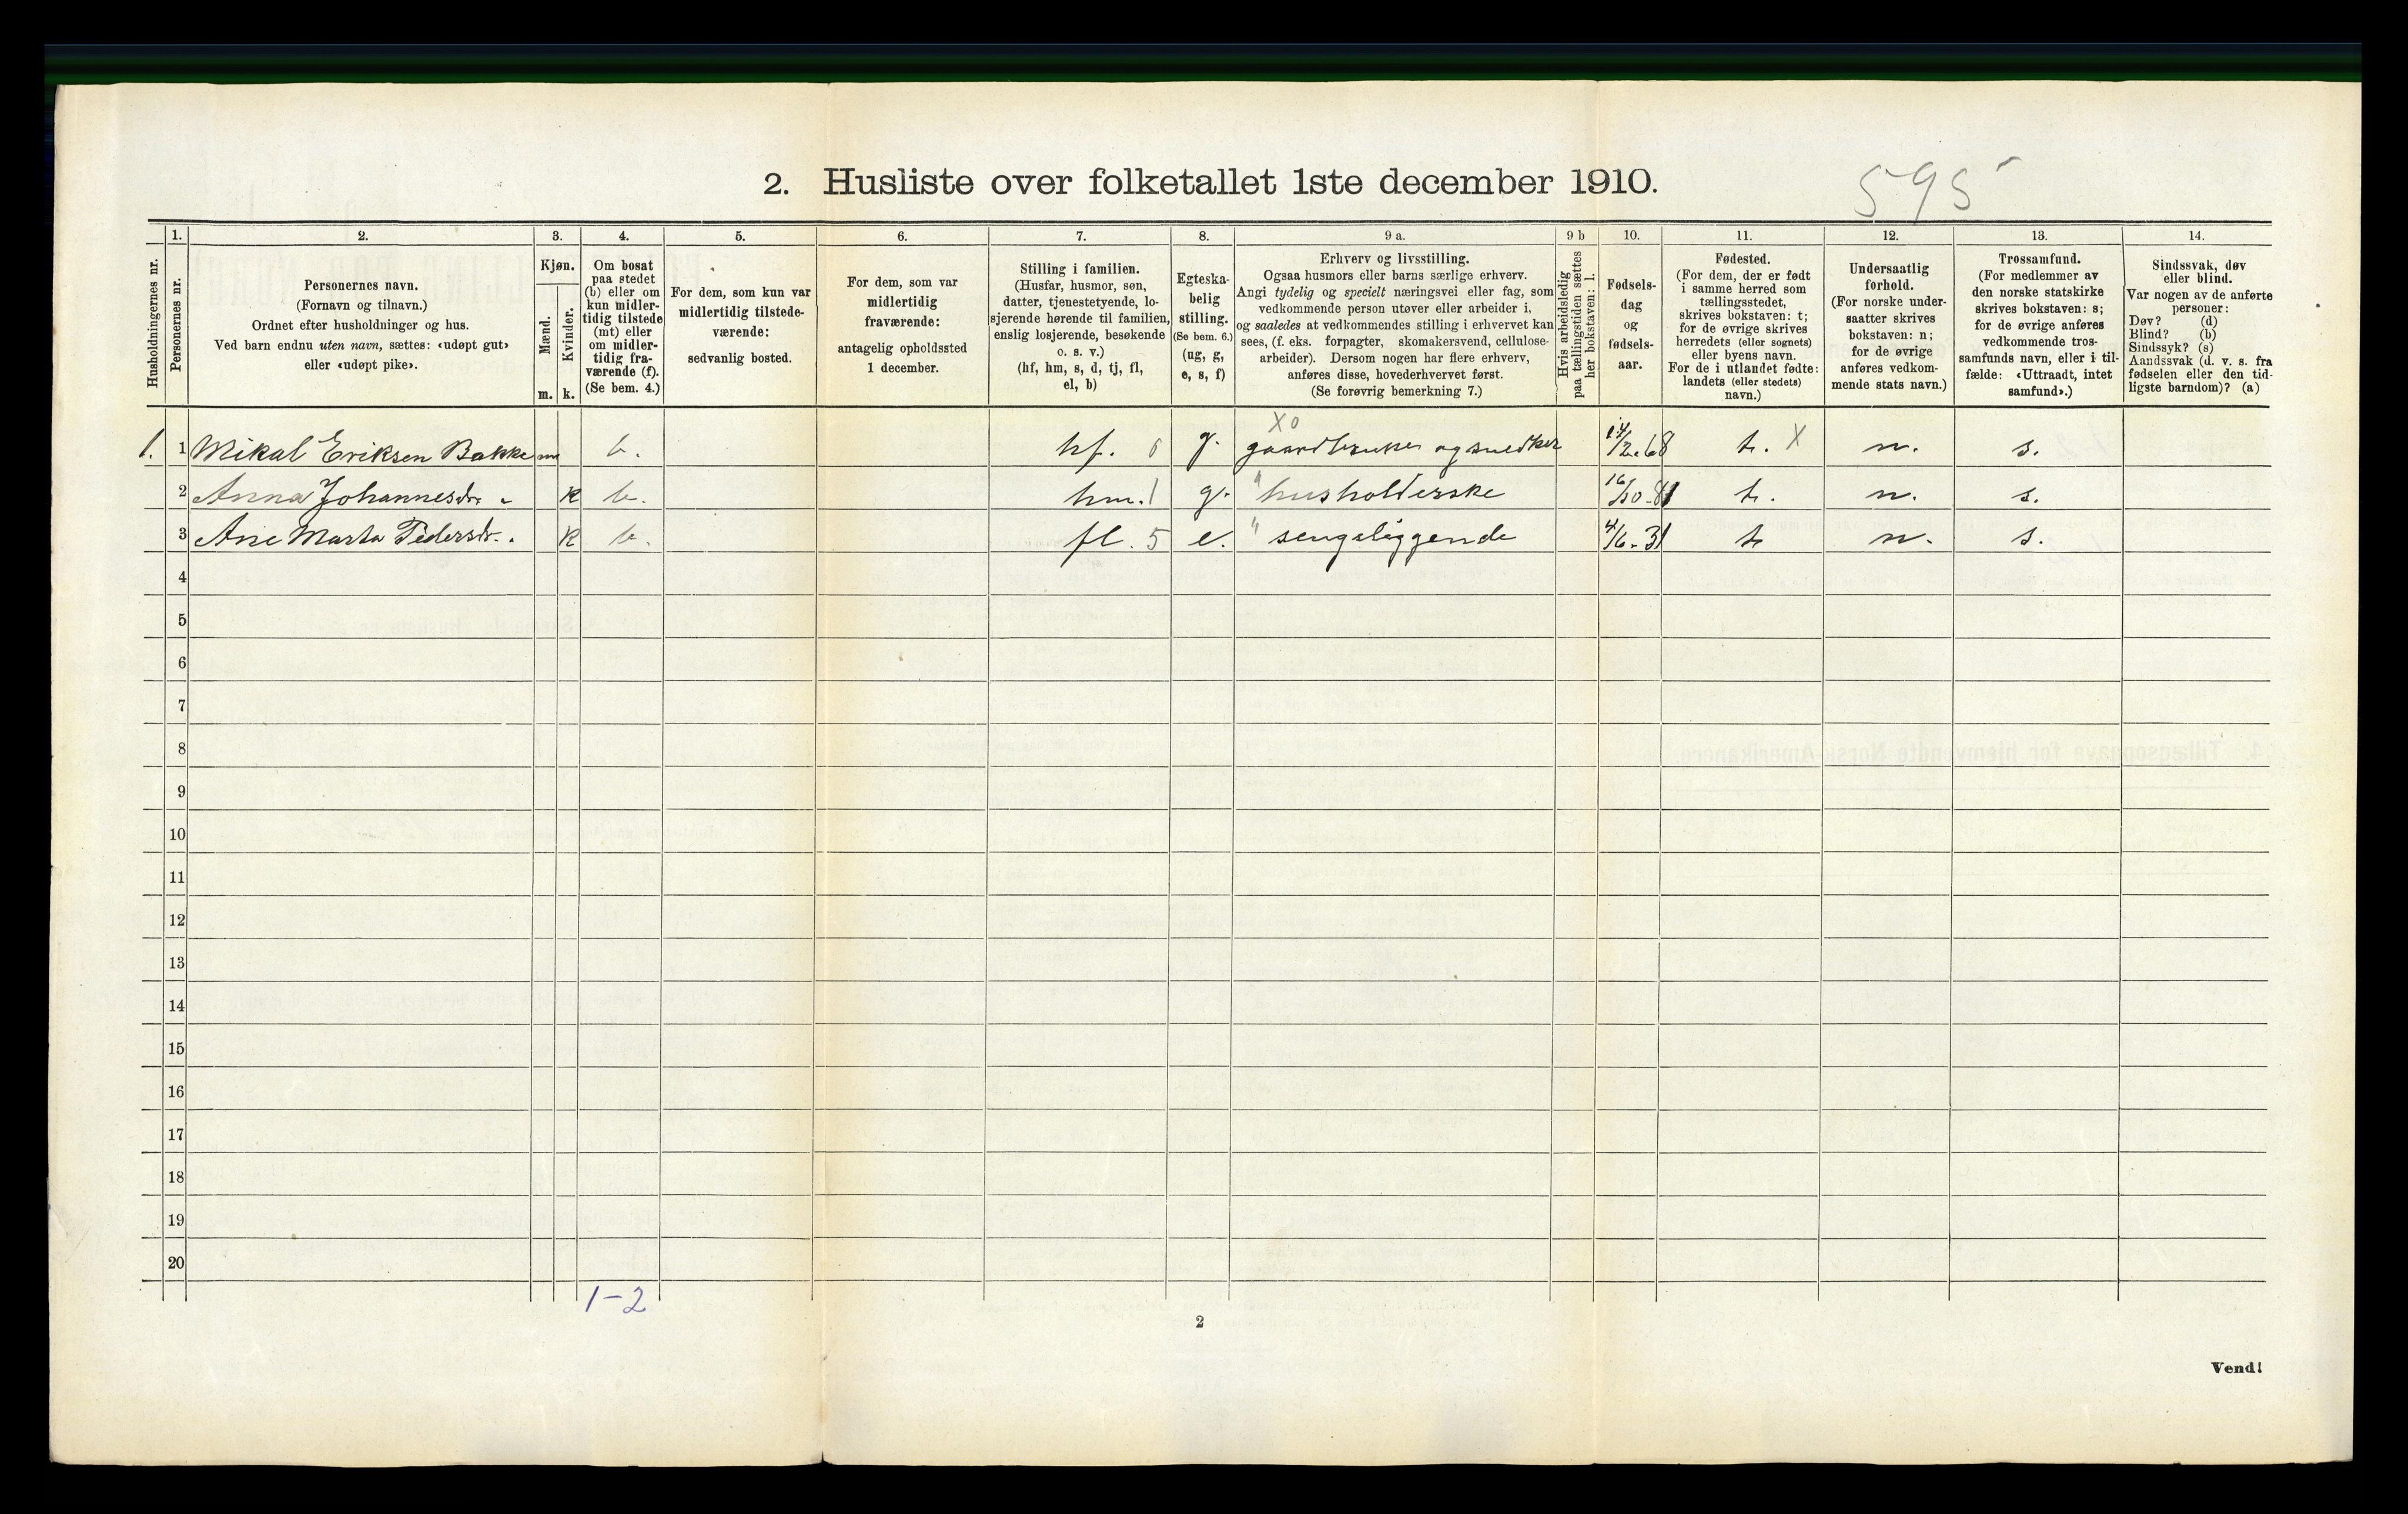 2. Husliste over folketallet 1ste december 1910.
595
Husholdningernes nr.
1.
Personernes nr.
2.
Personernes navn.
(Fornavn og tilnavn.)
Ordnet efter husholdninger og hus.
Ved barn endnu uten navn, sættes: «udøpt gut»
eller «udøpt pike».
3.
Kjøn.
Mænd.
Kvinder.
m.
k.
4.
Om bosat
paa stedet
(b) eller om
kun midler-
tidig tilstede
(mt) eller
om midler-
tidig fra-
værende (f).
(Se bem. 4.)
5.
For dem, som kun var
midlertidig tilstede-
værende:
sedvanlig bosted.
6.
For dem, som var
midlertidig
fraværende:
antagelig opholdssted
1 december.
7.
Stilling i familien.
(Husfar, husmor, søn,
datter, tjenestetyende, lo-
sjerende hørende til familien,
enslig losjerende, besøkende
o. s. v.)
(hf, hm, s, d, tj, fl,
el, b)
8.
Egteska-
belig
stilling.
(Se bem. 6.)
(ug, g,
e, s, f)
9 a.
Erhverv og livsstilling.
Ogsaa husmors eller barns særlige erhverv.
Angi tydelig og specielt næringsvei eller fag, som
vedkommende person utøver eller arbeider i,
og saaledes at vedkommendes stilling i erhvervet kan
sees, (f. eks. forpagter, skomakersvend, cellulose-
arbeider). Dersom nogen har flere erhverv,
anføres disse, hovederhvervet først.
(Se forøvrig bemerkning 7.)
9 b
Hvis arbeidsledig
paa tællingstiden sættes
her bokstaven: l.
10.
Fødsels-
dag
og
fødsels-
aar.
11.
Fødested.
(For dem, der er født
i samme herred som
tællingsstedet,
skrives bokstaven: t;
for de øvrige skrives
herredets (eller sognets)
eller byens navn.
For de i utlandet fødte:
landets (eller stedets)
navn.)
12.
Undersaatlig
forhold.
(For norske under-
saatter skrives
bokstaven: n;
for de øvrige
anføres vedkom-
mende stats navn.)
13.
Trossamfund.
(For medlemmer av
den norske statskirke
skrives bokstaven: s;
for de øvrige anføres
vedkommende tros-
samfunds navn, eller i til-
fælde: «Uttraadt, intet
samfund».)
14.
Sindssvak, døv
eller blind.
Var nogen av de anførte
personer:
Døv? (d)
Blind? (b)
Sindssyk? (s)
Aandssvak (d. v. s. fra
fødselen eller den tid-
ligste barndom)? (a)
X0
1. 1 Mikal Eriksen Bakke m b. hf. 0 g. gaardbruker og snedker 14/2.68 t. X n. s.
2 Anna Johannesdr. " k b. hm. 1 g. " husholderske 16/10-81 t. n. s.
3 Ane Marta Pedersdr. " k b. fl. 5 e. " sengeliggende 4/6-31 t n. s.
4
5
6
7
8
9
10
11
12
13
14
15
16
17
18
19
20
1-2
2
Vend!